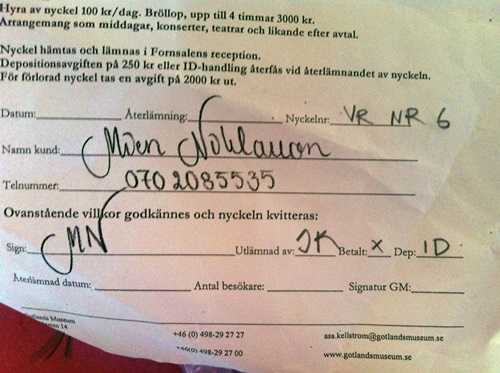 Hyra av nyckel 100 kr/dag. Bröllop, upp till 4 timmar 3000 kr.
Arrangemang som middagar, konserter, teatrar och likande efter avtal.
Nyckel hämtas och lämnas i Fornsalens reception.
Depositionsavgiften på 250 kr eller ID-handling återfås vid återlämnandet av nyckeln.
För förlorad nyckel tas en avgift på 2000 kr ut.
Datum: Återlämning: Nyckelnr: VR NR 6
Namn kund:
Telnummer: 070 2085535
Ovanstående villkor godkännes och nyckeln kvitteras:
Sign: MN Utlämnad av: JK Betalt: X Dep: ID
Återlämnad datum: Antal besökare: Signatur GM:
Gotlands Museum
14
+46 (0) 498-29 27 27 asa.kellstrom@gotlandsmuseum.se
+46(0) 498-29 27 00 www.gotlandsmuseum.se